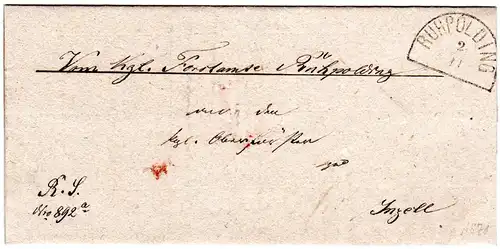 RUHPOLDING
2
11
Vom kgl. Forstamte Ruhpolding
an den
kgl. Oberförster
zu
R. S.
Nro 892 a
Inzell